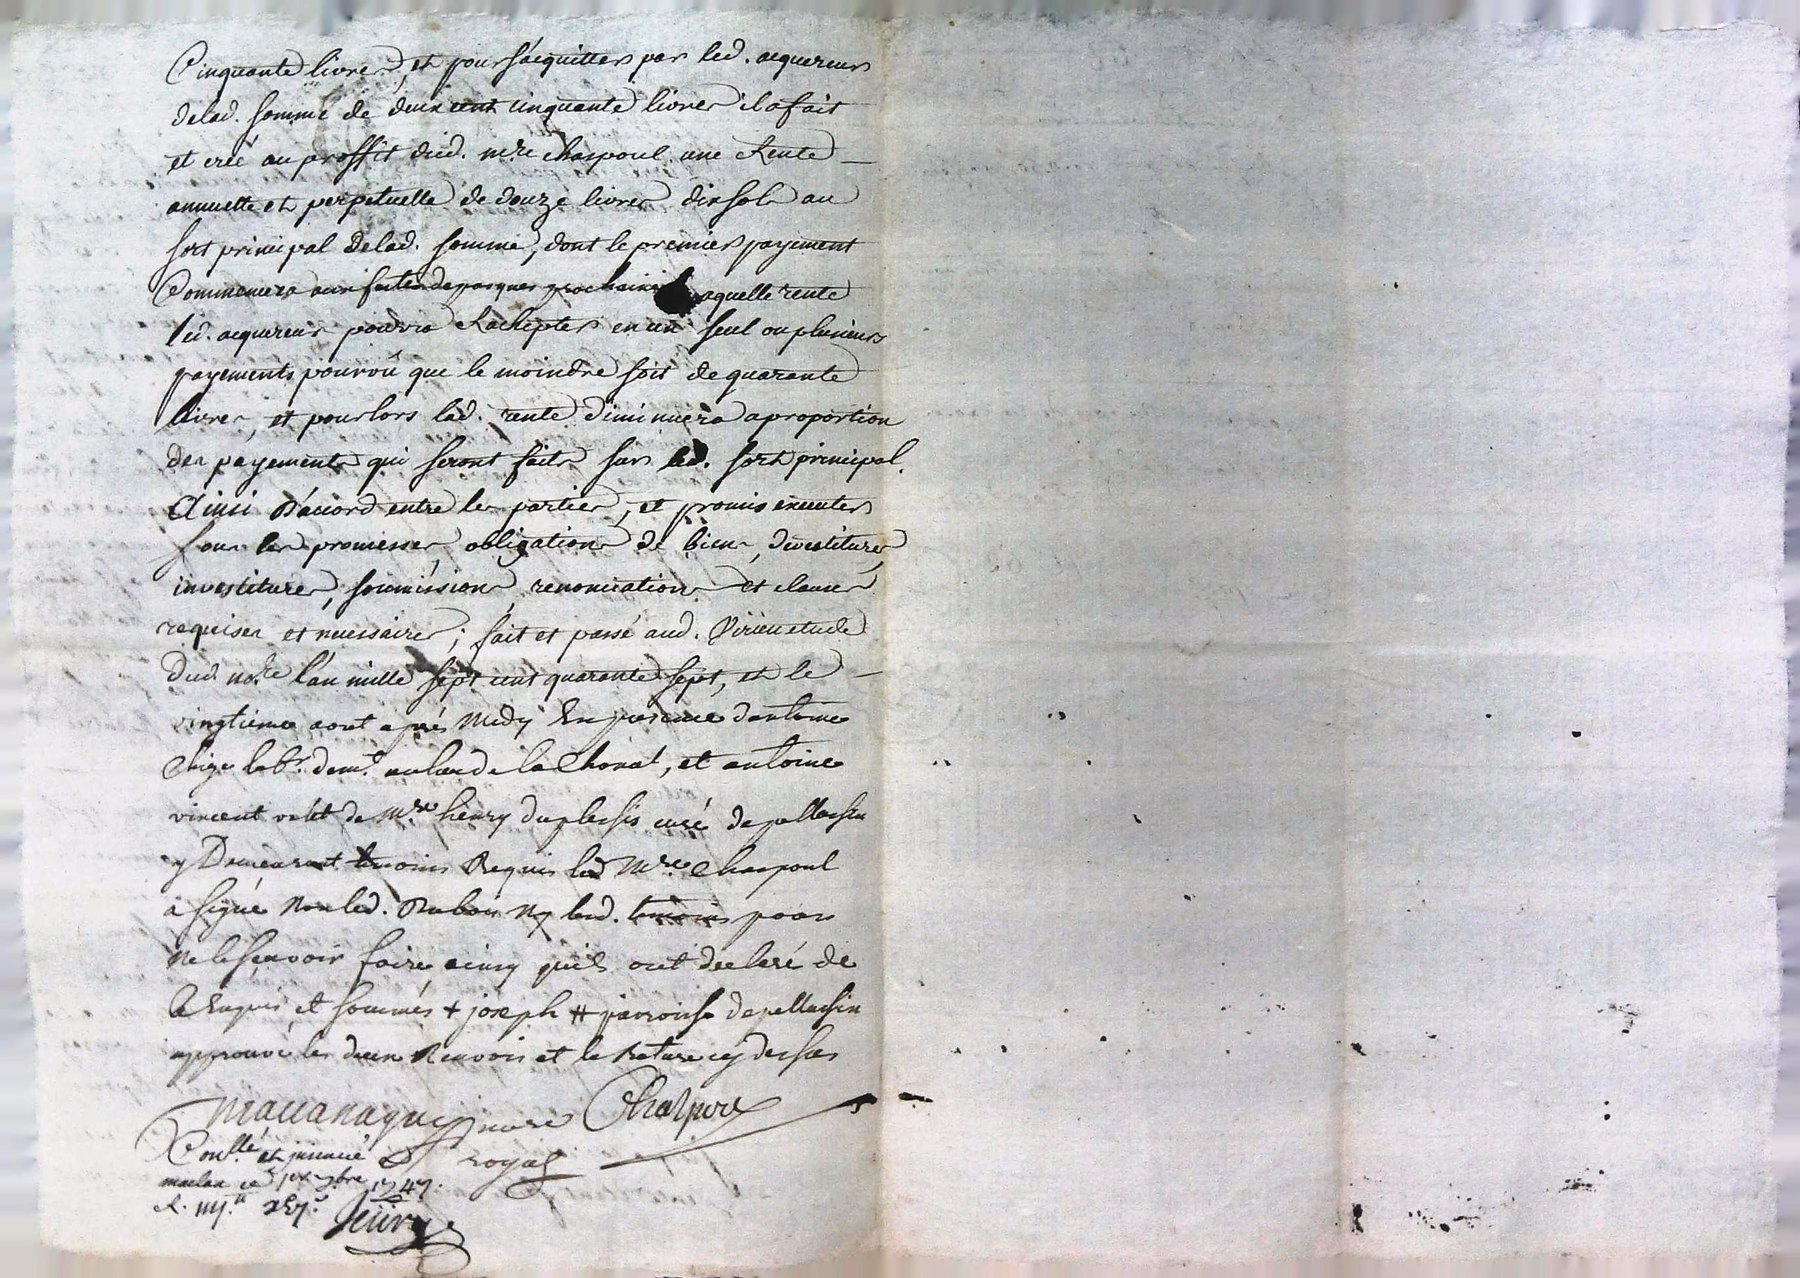 Cinquante livres, et pour s'acquitter par led. acquereur
delad. somme de deux cent cinquante livres il a fait
et creé au proffit dud. mre chaspoul une Rente
annuelle et perpetuelle de douze livres dix sols au
sort principal delad. somme, dont le premier payement
Commencera aux festes de pasques prochaines laquelle rente
led. acquereur pourra Rachepter en un seul ou plusieurs
payements pourvû que le moindre soit de quarante
livres, et pour lors lad. rente diminuera a proportion
des payements qui seront faits sur led. sort principal.
Ainsi d'accord entre les parties, et promis executer
sous les promesses, obligations de biens, devestitures
investitures, soumissions, renonciations et clauses
requises et necessaires; fait et passé aud. Virieu etude
Dud. nore. l'an mille sept cent quarante sept, et le
vingtieme aout après Midy En presence d'antoine
labr. demt. au lieu de la Chonat, et antoine
vincent valet de Mre henry duplessis curé de pellussin
y Demeurant temoins Requis led Mre. Chaspoul
a signé Non led. Dubois Ny lesd. temoins pour
Ne le sçavoir faire ainsy quils ont declaré de
ce Enquis et sommés + joseph # parroisse de pellussin
approuvé les deux Renvois et la Rature cy dessus
Chaspoul
royal
Conllé et insinué a
malan ce 7bre 1747.
R.